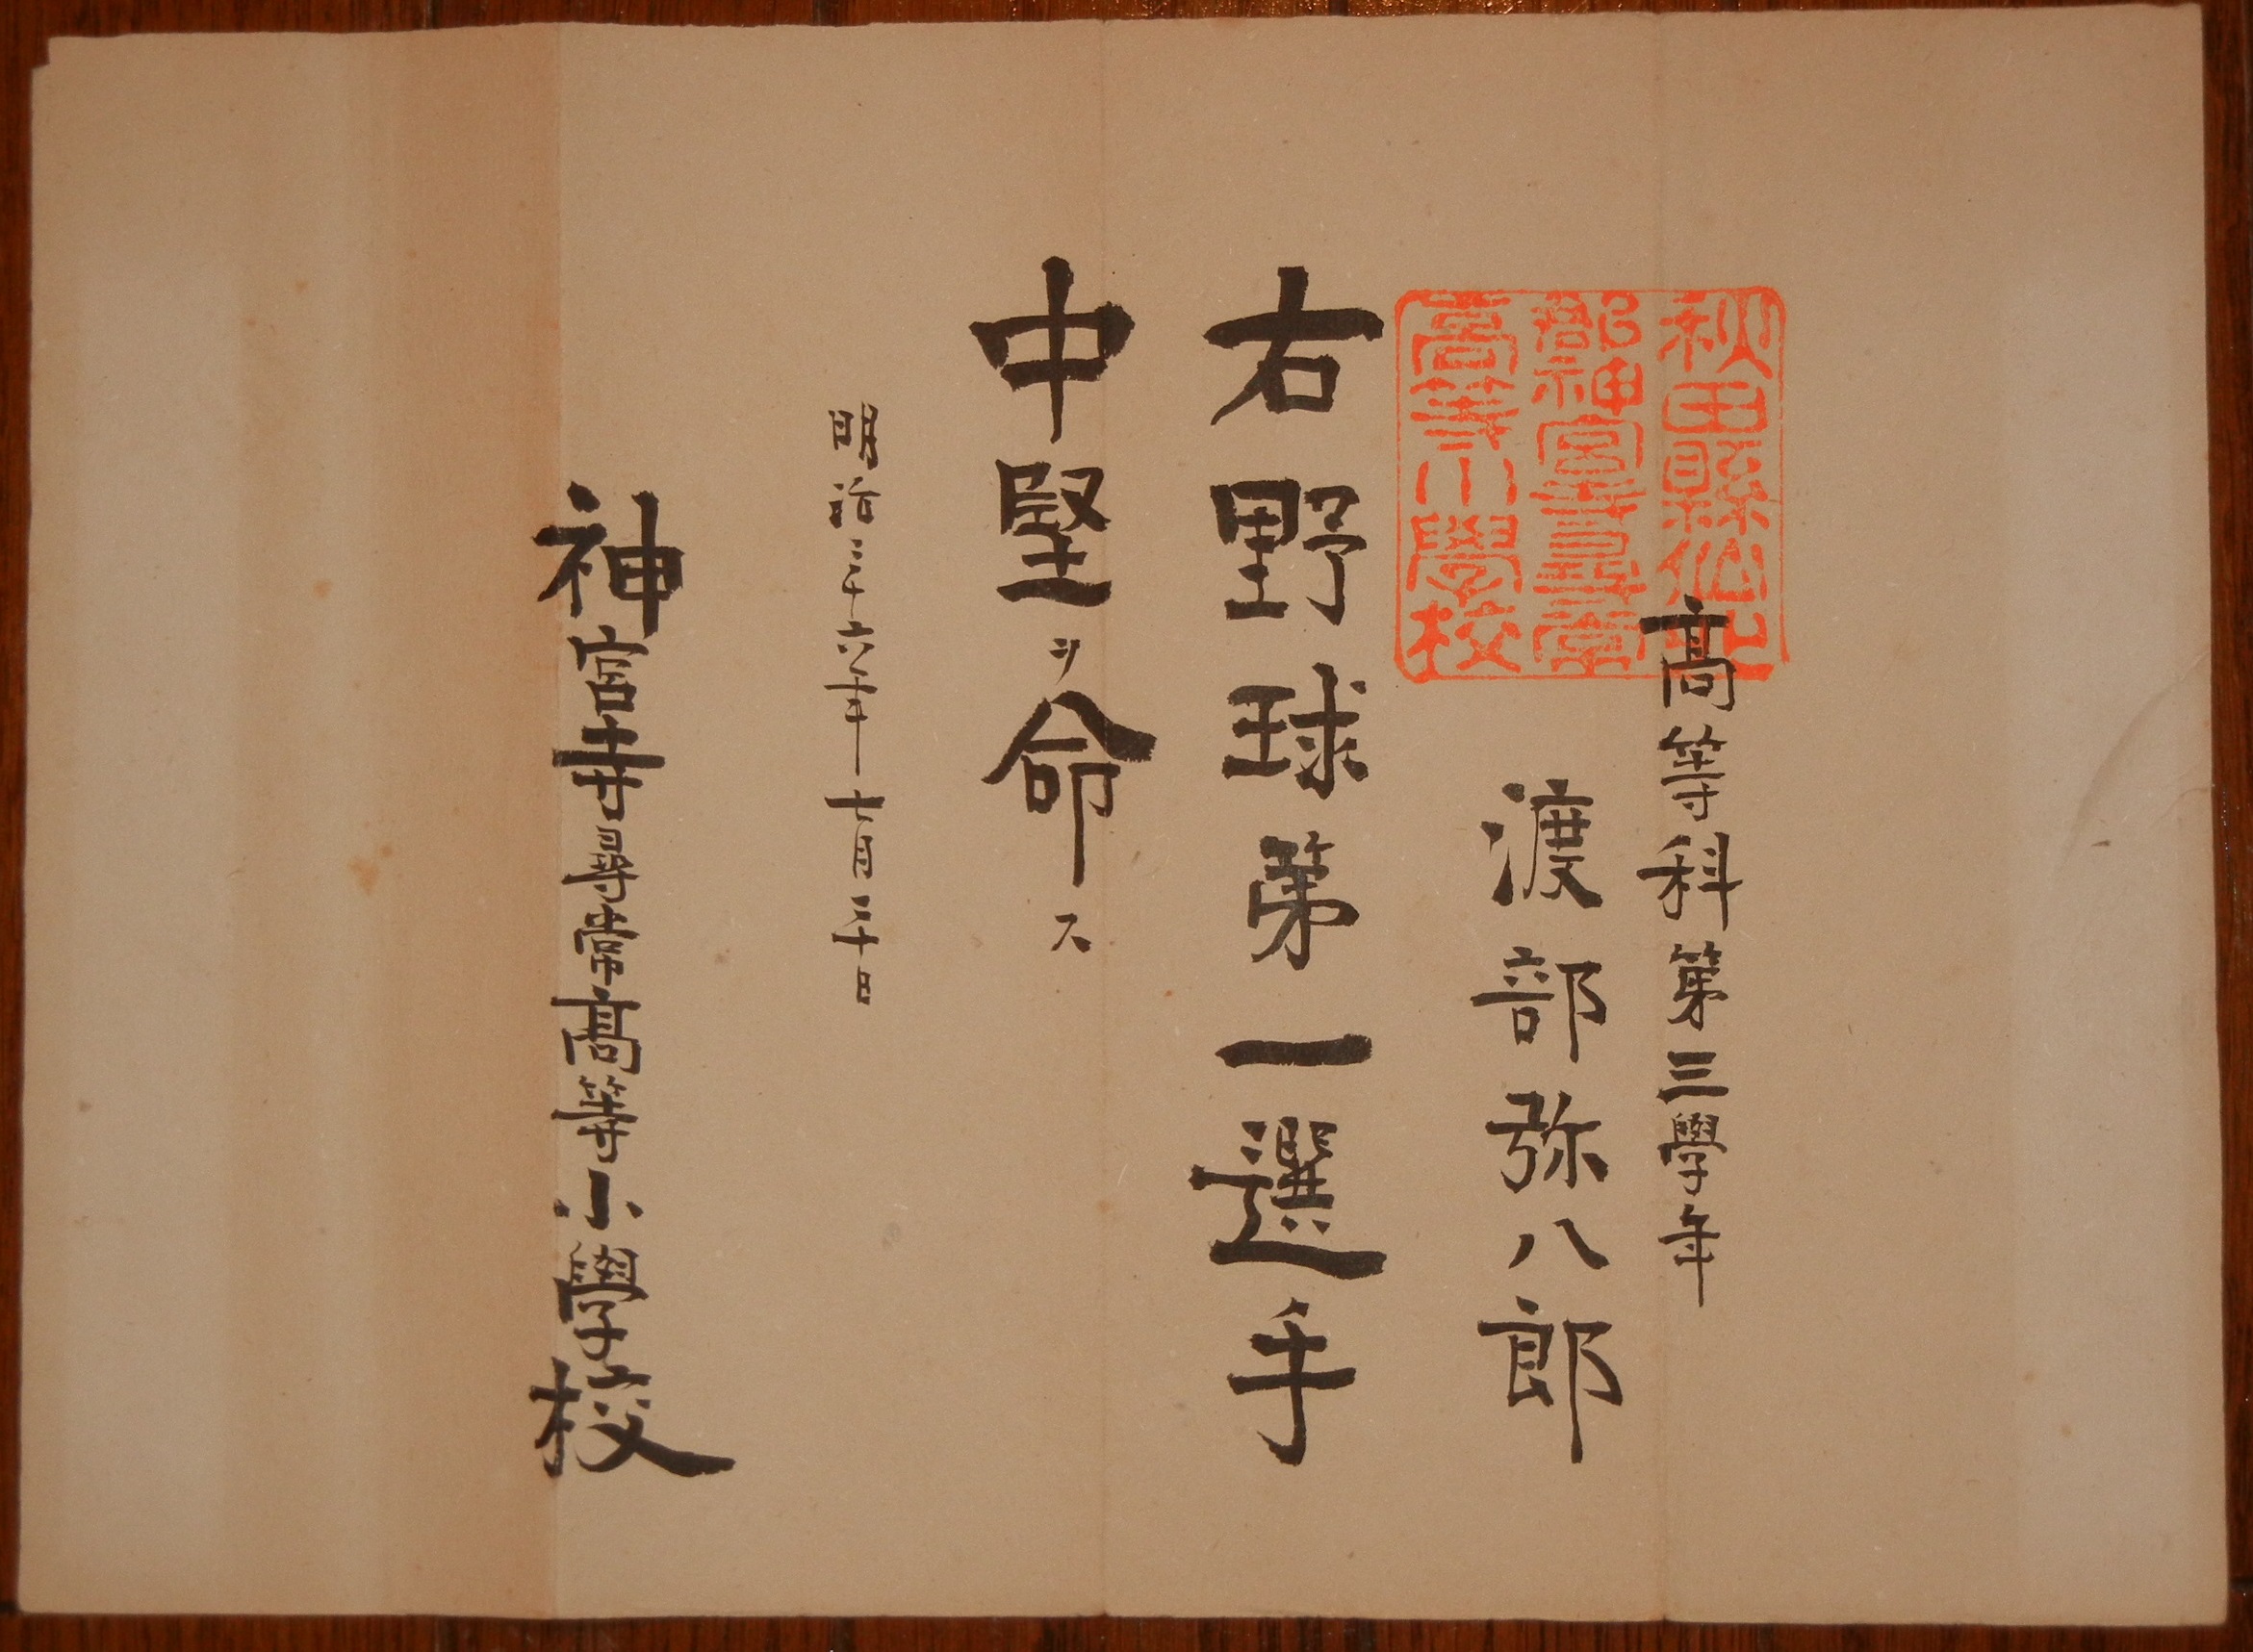 秋田縣仙北
郡神宮寺尋常
高等小學校
高等科第三學年
渡部弥八郎
右野球第一選手
中堅ヲ命ス
明治三十六年七月三十日
神宮寺尋常高等小學校